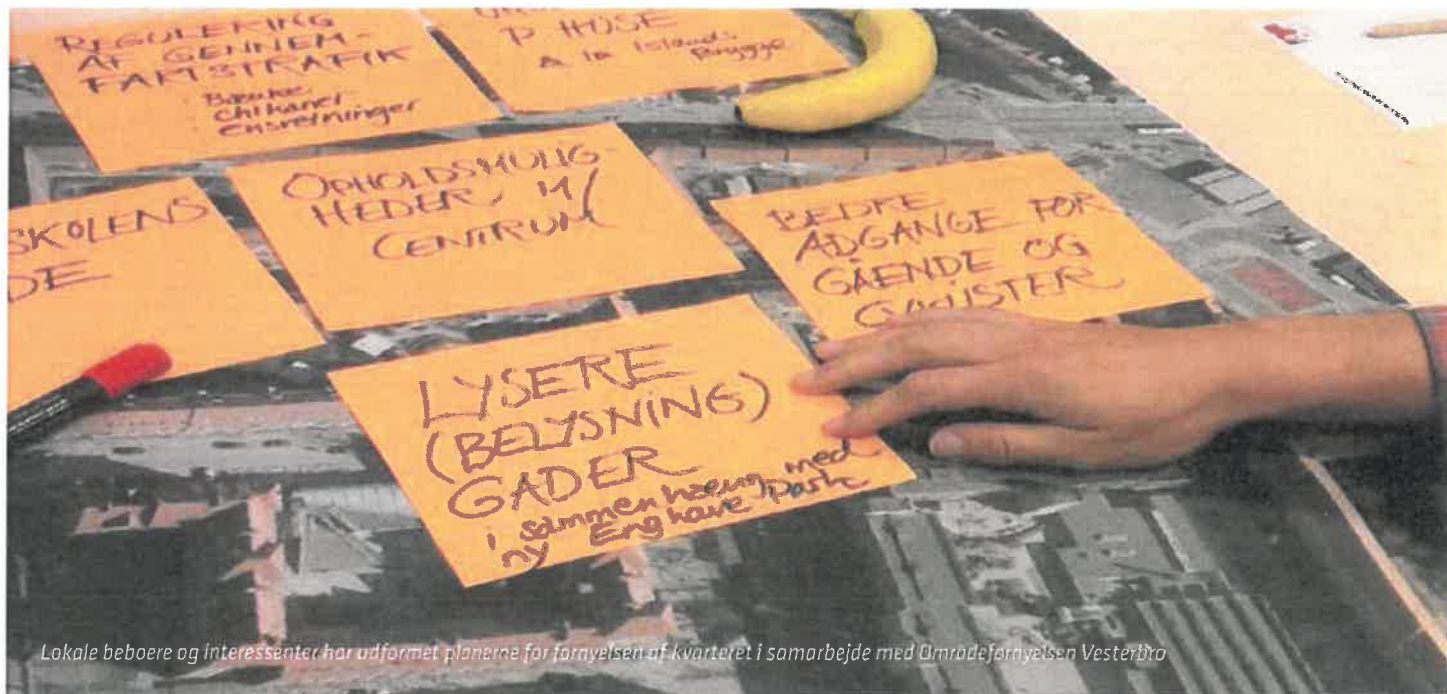 REGULERING
AF GENNEM-
FARTSTRAFIK
Bænke
chikaner
ensretninger
P HUSE
a la Islands
Brygge
SKOLENS
DE
OPHOLDSMULIG-
HEDER M/
CENTRUM
BEDRE
ADGANGE FOR
GÅENDE OG
CYKLISTER
LYSERE
(BELYSNING)
GADER
i sammenhæng med
ny Enghave Park
Lokale beboere og interessenter har udformet planerne for fornyelsen af kvarteret i samarbejde med Områdefornyelsen Vesterbro